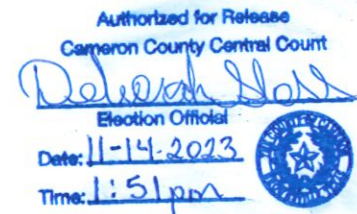 Authorized for Release
Cameron County Central Count
Deborah
Election Official
Date: 11-14-2023
Time: 1:51pm